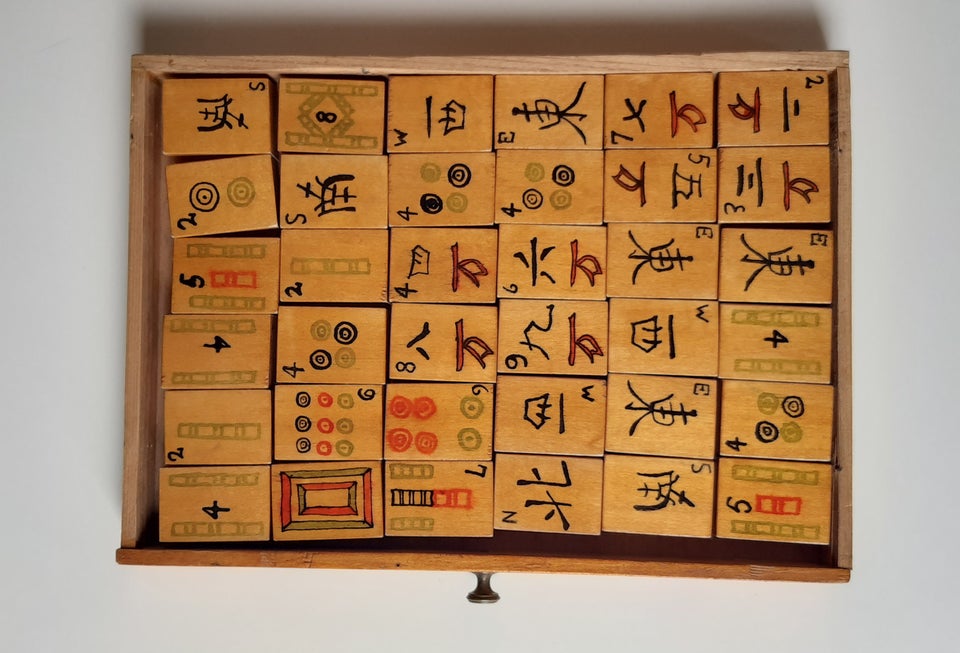 S 南
8
W 西
E 東
7 七 万
2 二 万
2
S 南
4
4
5 伍 万
3 三 万
5
2
4 四 万
6 六 万
E 東
E 東
4
4
8 八 万
9 九 万
W 西
4
2
9
6
W 西
E 東
4
4
7
N 北
S 南
5